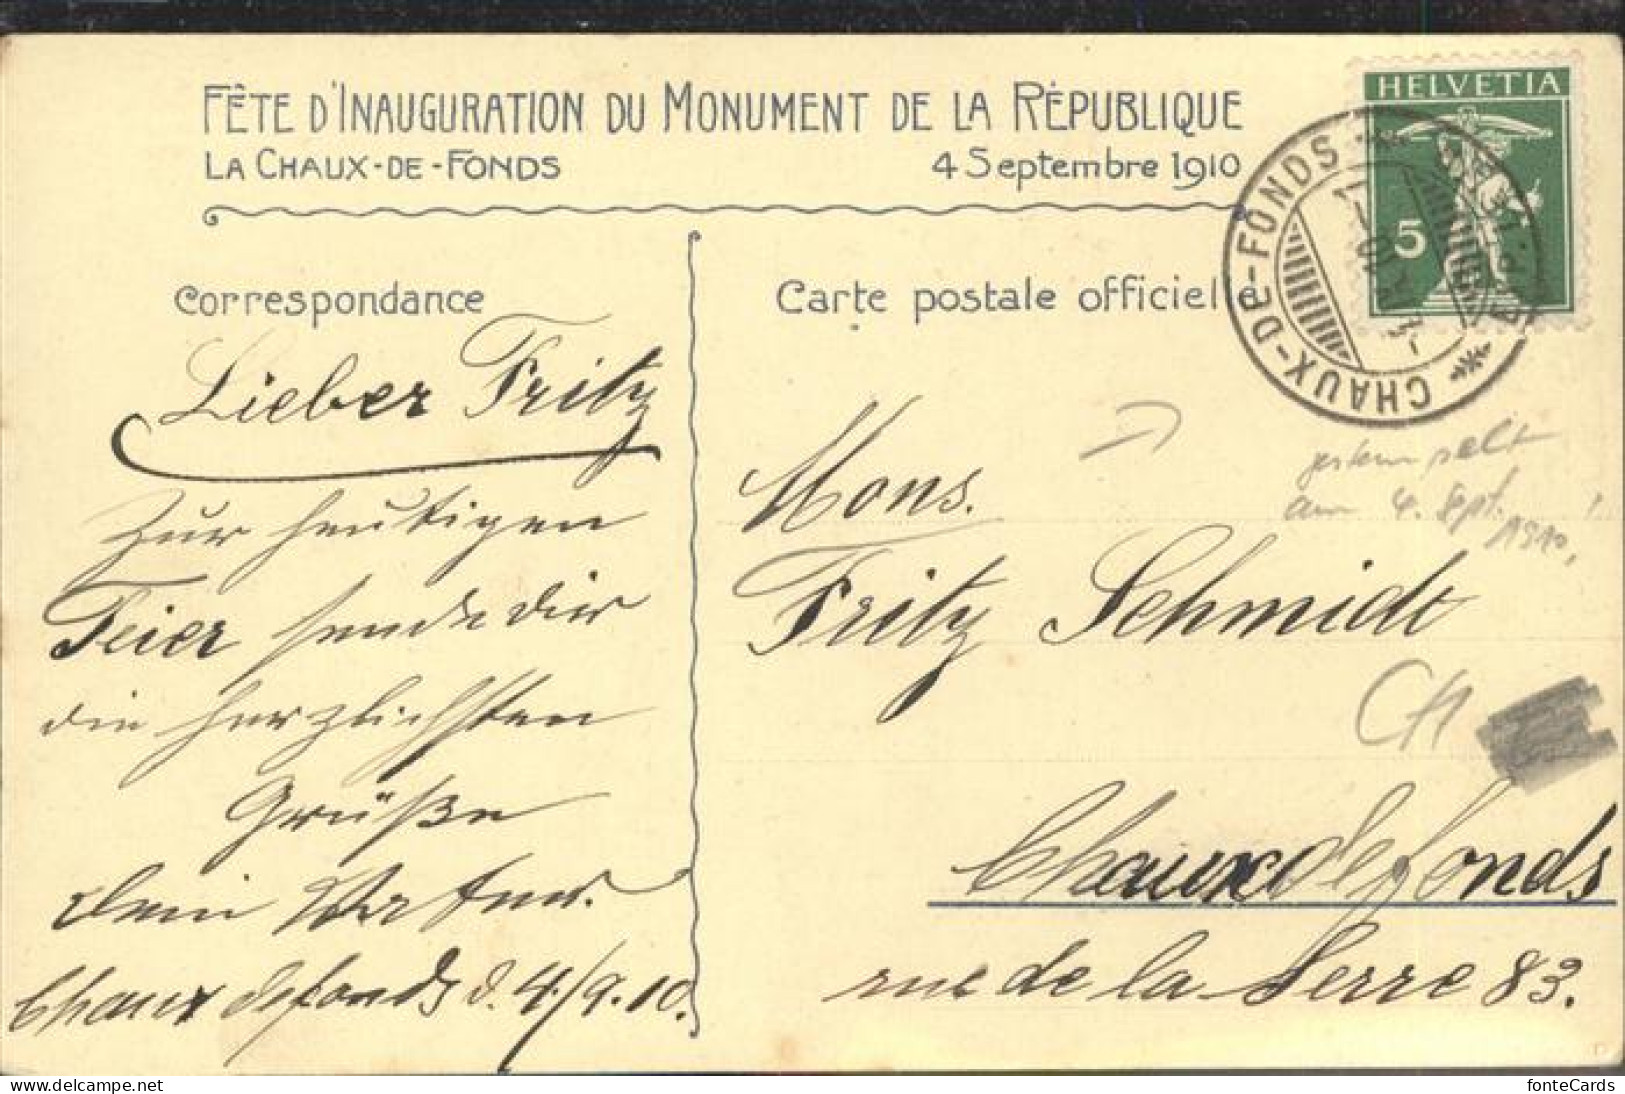 FÊTE D'INAUGURATION DU MONUMENT DE LA RÉPUBLIQUE
LA CHAUX-DE-FONDS 4 Septembre 1910
Correspondance
Carte postale officielle
HELVETIA
5
CHAUX-DE-FONDS
Lieber Fritz
Zur heutigen
Feier sende dir
die herzlichsten
Grüße
dein Vater
Chaux de fonds d. 4/9.10.
gestempelt
am 4. Sept. 1910
Mons.
Fritz Schmidt
CH
Chaux de fonds
rue de la Serre 83.
fonteCards